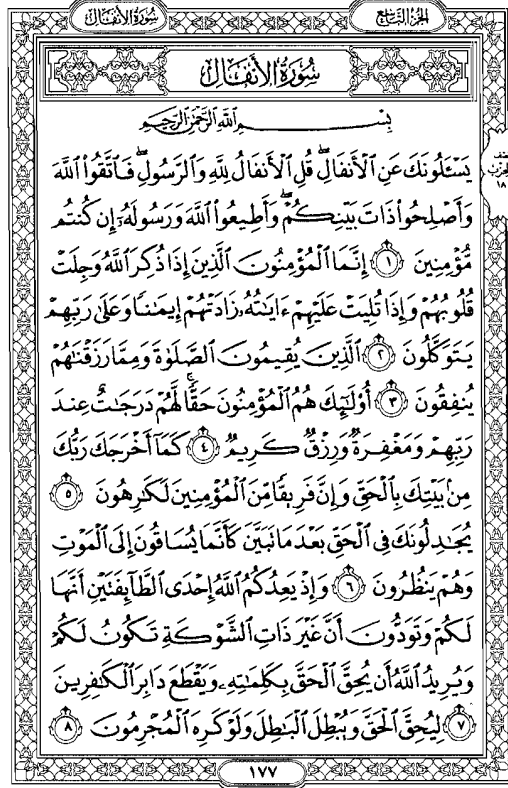 سُورَةُ الأَنفَالِ
الجُزْءُ التَّاسِعُ
سُورَةُ الأَنفَالِ
بِسْمِ ٱللَّهِ ٱلرَّحْمَٰنِ ٱلرَّحِيمِ
يَسْـَٔلُونَكَ عَنِ ٱلْأَنفَالِۖ قُلِ ٱلْأَنفَالُ لِلَّهِ وَٱلرَّسُولِۖ فَٱتَّقُوا۟ ٱللَّهَ
نصف
الحزب
١٨
وَأَصْلِحُوا۟ ذَاتَ بَيْنِكُمْۖ وَأَطِيعُوا۟ ٱللَّهَ وَرَسُولَهُۥٓ إِن كُنتُم
مُّؤْمِنِينَ ١ إِنَّمَا ٱلْمُؤْمِنُونَ ٱلَّذِينَ إِذَا ذُكِرَ ٱللَّهُ وَجِلَتْ
قُلُوبُهُمْ وَإِذَا تُلِيَتْ عَلَيْهِمْ ءَايَٰتُهُۥ زَادَتْهُمْ إِيمَٰنًا وَعَلَىٰ رَبِّهِمْ
يَتَوَكَّلُونَ ٢ ٱلَّذِينَ يُقِيمُونَ ٱلصَّلَوٰةَ وَمِمَّا رَزَقْنَٰهُمْ
يُنفِقُونَ ٣ أُو۟لَٰٓئِكَ هُمُ ٱلْمُؤْمِنُونَ حَقًّاۚ لَّهُمْ دَرَجَٰتٌ عِندَ
رَبِّهِمْ وَمَغْفِرَةٌ وَرِزْقٌ كَرِيمٌ ٤ كَمَآ أَخْرَجَكَ رَبُّكَ
مِنۢ بَيْتِكَ بِٱلْحَقِّ وَإِنَّ فَرِيقًا مِّنَ ٱلْمُؤْمِنِينَ لَكَٰرِهُونَ ٥
يُجَٰدِلُونَكَ فِى ٱلْحَقِّ بَعْدَ مَا تَبَيَّنَ كَأَنَّمَا يُسَاقُونَ إِلَى ٱلْمَوْتِ
وَهُمْ يَنظُرُونَ ٦ وَإِذْ يَعِدُكُمُ ٱللَّهُ إِحْدَى ٱلطَّآئِفَتَيْنِ أَنَّهَا
لَكُمْ وَتَوَدُّونَ أَنَّ غَيْرَ ذَاتِ ٱلشَّوْكَةِ تَكُونُ لَكُمْ
وَيُرِيدُ ٱللَّهُ أَن يُحِقَّ ٱلْحَقَّ بِكَلِمَٰتِهِۦ وَيَقْطَعَ دَابِرَ ٱلْكَٰفِرِينَ
٧ لِيُحِقَّ ٱلْحَقَّ وَيُبْطِلَ ٱلْبَٰطِلَ وَلَوْ كَرِهَ ٱلْمُجْرِمُونَ ٨
١٧٧